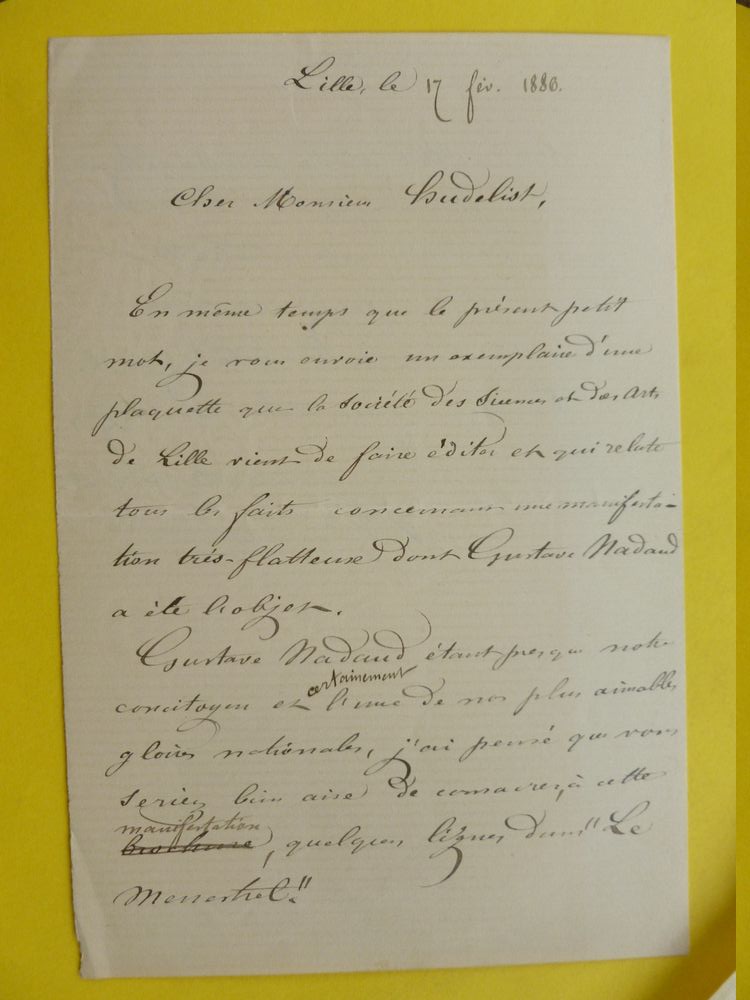 Lille, le 17 fév. 1880.
Cher Monsieur Hudelist,
En même temps que le présent petit
mot, je vous envoie un exemplaire d'une
plaquette que la Société des Sciences et des Arts
de Lille vient de faire éditer et qui relate
tous les faits concernant une manifesta-
tion très-flatteuse dont Gustave Nadaud
a été l'objet.
Gustave Nadaud étant presque notre
concitoyen et certainement l'une de nos plus aimables
gloires nationales, j'ai pensé que vous
seriez bien aise de consacrer, à cette
brochure manifestation, quelques lignes dans "Le
Menestrel."